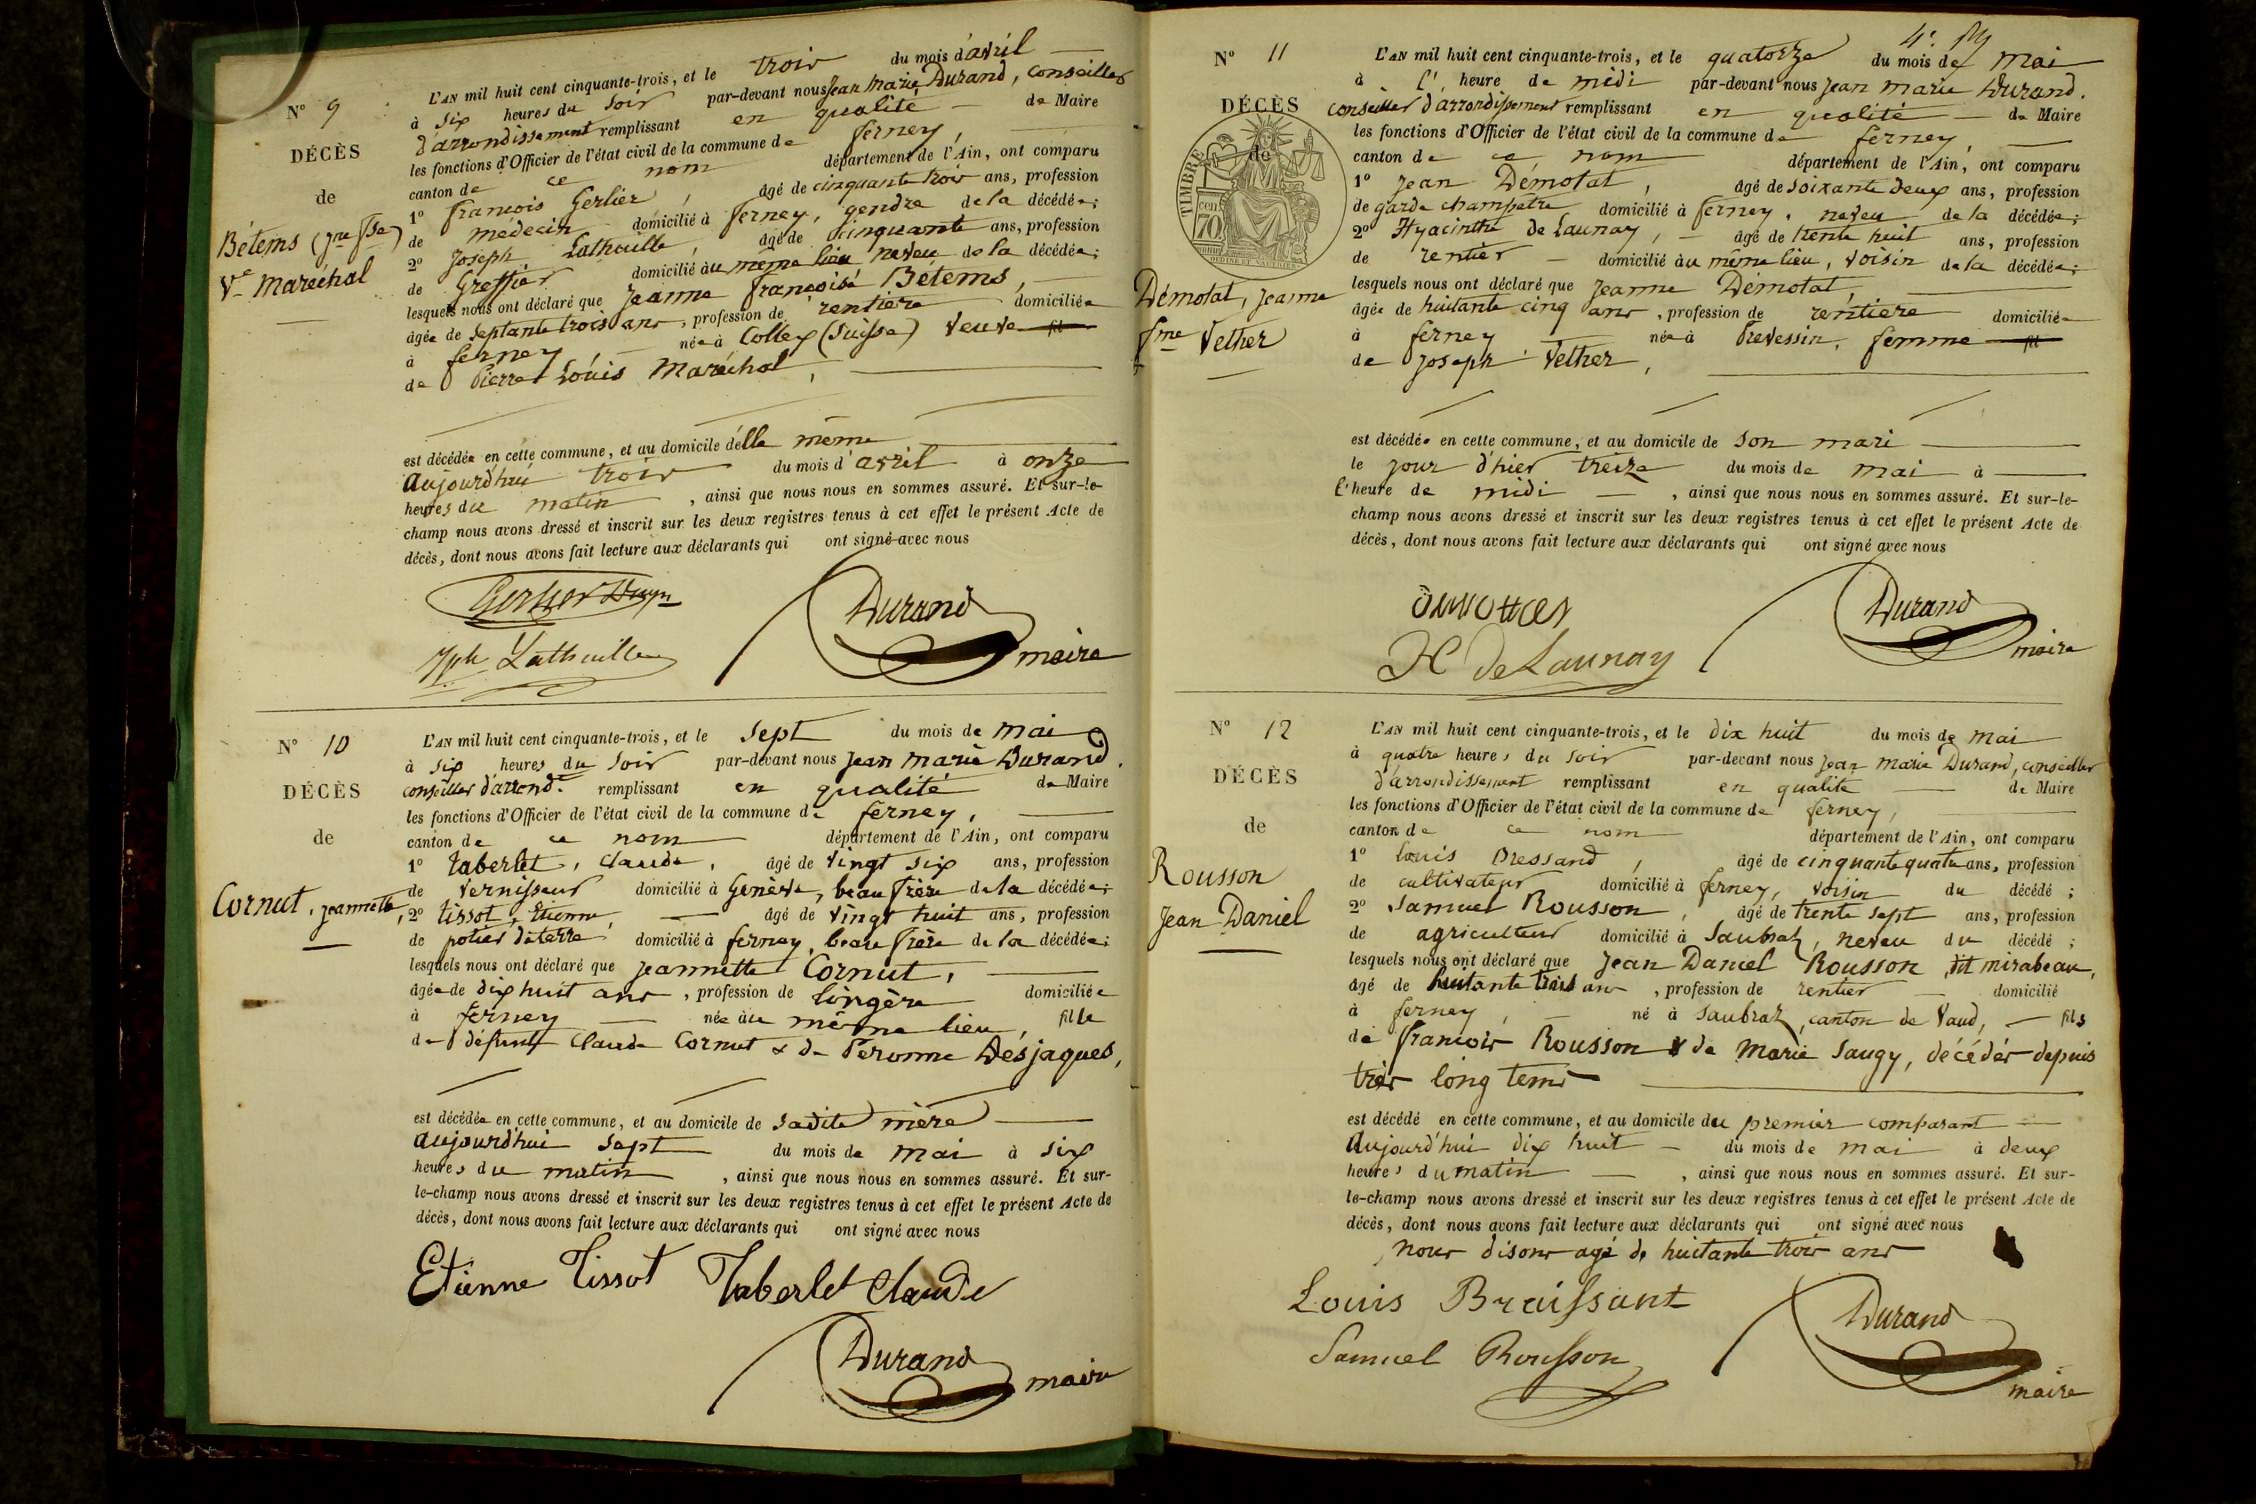 N° 9
DÉCÈS
de
Bétems (jne fse)
Ve Maréchal
L'AN mil huit cent cinquante-trois, et le trois du mois d'avril
à six heures du soir par-devant nous Jean Marie Durand, conseiller
d'arrondissement remplissant en qualité de Maire
les fonctions d'Officier de l'état civil de la commune de ferney,
canton de ce nom département de l'Ain, ont comparu
1° francois Gerlier, âgé de cinquante trois ans, profession
de médecin domicilié à ferney, gendre de la décédée;
2° Joseph Lathuille, âgé de cinquante ans, profession
de Greffier domicilié au même lieu neveu de la décédée;
lesquels nous ont déclaré que Jeanne françoise Bétems,
âgée de septante trois ans, profession de rentière domiciliée
à ferney née à Collex (Suisse) veuve fil
de Pierre Louis Maréchal,
est décédée en cette commune, et au domicile d'elle même
aujourd'hui trois du mois d'avril à onze
heures du matin, ainsi que nous nous en sommes assuré. Et sur-le-
champ nous avons dressé et inscrit sur les deux registres tenus à cet effet le présent Acte de
décès, dont nous avons fait lecture aux déclarants qui ont signé avec nous
Durand
Jph Lathuille
maire
N° 10
DÉCÈS
de
Cornut, jeannette,
L'AN mil huit cent cinquante-trois, et le sept du mois de mai
à six heures du soir par-devant nous Jean marie Durand,
conseiller d'arrondt. remplissant en qualité de Maire
les fonctions d'Officier de l'état civil de la commune de ferney,
canton de ce nom département de l'Ain, ont comparu
1° Taberlet, claude, âgé de vingt six ans, profession
de vernisseur domicilié à Genève, beau frère de la décédée;
2° tissot, Etienne, âgé de vingt huit ans, profession
de potier de terre domicilié à ferney, beau frère de la décédée;
lesquels nous ont déclaré que jeannette Cornut,
âgée de dix huit ans, profession de lingère domiciliée
à ferney née au même lieu, fille
de défunt Claude Cornut & de Peronne Desjaques,
est décédée en cette commune, et au domicile de sadite mère
aujourd'hui sept du mois de mai à six
heures du matin, ainsi que nous nous en sommes assuré. Et sur-
le-champ nous avons dressé et inscrit sur les deux registres tenus à cet effet le présent Acte de
décès, dont nous avons fait lecture aux déclarants qui ont signé avec nous
Etienne Tissot Taberlet Claude
Durand
maire
4e.
N° 11
DÉCÈS
de
TIMBRE
70 cen
Démotat, Jeanne
fme Vether
L'AN mil huit cent cinquante-trois, et le quatorze du mois de mai
à l'heure de midi par-devant nous jean marie Durand.
conseiller d'arrondissement remplissant en qualité de Maire
les fonctions d'Officier de l'état civil de la commune de ferney
canton de ce nom département de l'Ain, ont comparu
1° jean Démotat, âgé de soixante deux ans, profession
de garde champetre domicilié à ferney, neveu de la décédée;
2° Hyacinthe de Launay, âgé de trente huit ans, profession
de rentier domicilié au même lieu, voisin de la décédée;
lesquels nous ont déclaré que Jeanne Démotat,
âgée de huitante cinq ans, profession de rentière domiciliée
à ferney née à Prevessin, femme fil
de joseph Vether,
est décédée en cette commune, et au domicile de son mari
le jour d'hier treize du mois de mai à
l'heure de midi, ainsi que nous nous en sommes assuré. Et sur-le-
champ nous avons dressé et inscrit sur les deux registres tenus à cet effet le présent Acte de
décès, dont nous avons fait lecture aux déclarants qui ont signé avec nous
Durand
H de Launay
maire
N° 12
DÉCÈS
de
Rousson
Jean Daniel
L'AN mil huit cent cinquante-trois, et le dix huit du mois de mai
à quatre heures du soir par-devant nous jean marie Durand, conseiller
d'arrondissement remplissant en qualité de Maire
les fonctions d'Officier de l'état civil de la commune de ferney,
canton de ce nom département de l'Ain, ont comparu
1° Louis Bressand, âgé de cinquante quatre ans, profession
de cultivateur domicilié à ferney, voisin du décédé;
2° Samuel Rousson, âgé de trente sept ans, profession
de agriculteur domicilié à Saubraz, neveu du décédé;
lesquels nous ont déclaré que Jean Daniel Rousson dit mirabeau,
âgé de huitante trois ans, profession de rentier domicilié
à ferney, né à Saubraz, canton de Vaud, fils
de françois Rousson & de Marie Saugy, décédés depuis
très long tems
est décédé en cette commune, et au domicile du premier comparant
aujourd'hui dix huit du mois de mai à deux
heures du matin, ainsi que nous nous en sommes assuré. Et sur-
le-champ nous avons dressé et inscrit sur les deux registres tenus à cet effet le présent Acte de
décès, dont nous avons fait lecture aux déclarants qui ont signé avec nous
nous disons agé de huitante trois ans
Louis Braissant
Durand
Samuel Rousson
maire